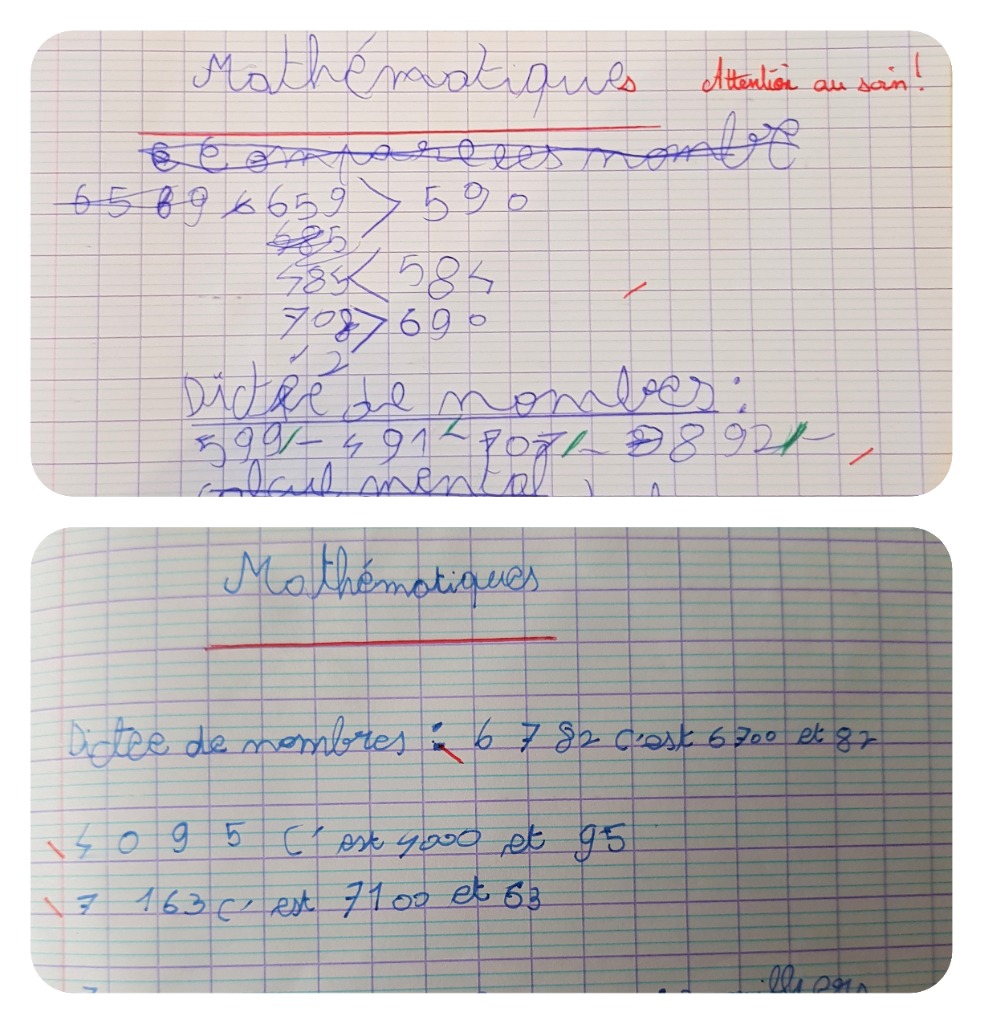 Mathématiques Attention au soin!
659 > 590
485 < 584
708 > 690
Dictée de nombres :
599 - 491 - 707 - 892 -
calcul mental
Mathématiques
Dictée de nombres : 6 782 c'est 6700 et 82
4 0 9 5 c'est 4000 et 95
7 163 c'est 7100 et 63